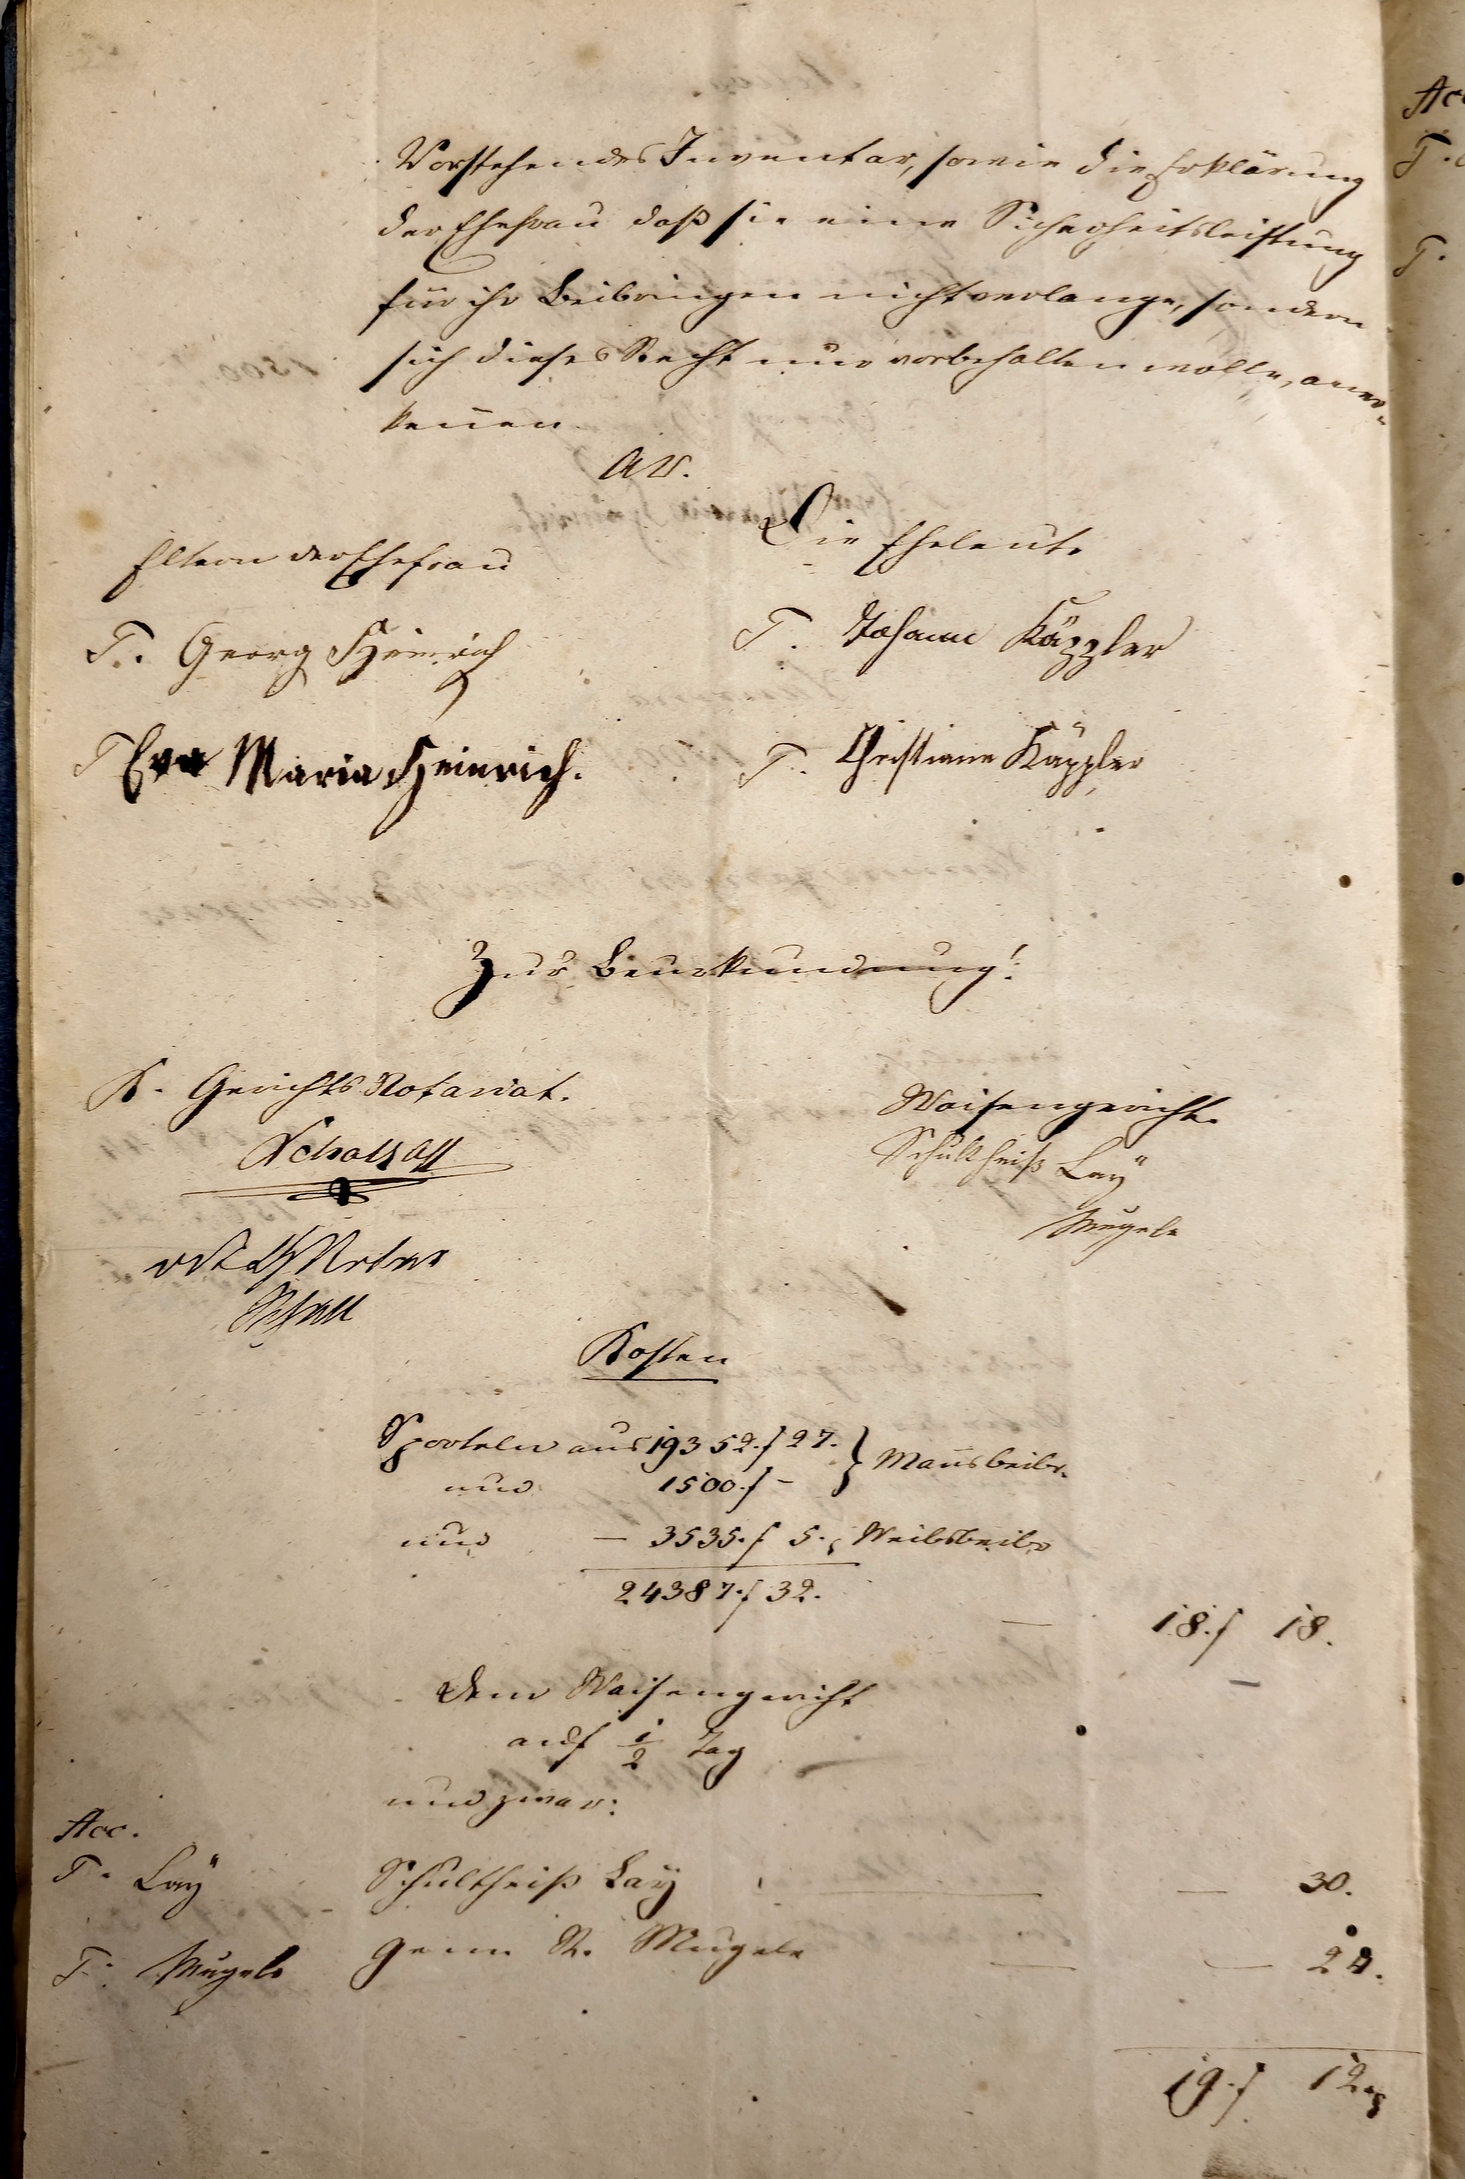 Vorstehendes Inventar, sowie die Erklärung
der Ehefrau daß sie eine Sicherheitsleistung
für ihr Beibringen nicht verlange, sondern
sich dieses Recht nur vorbehalten wolle, aner-
kennen
Die Eheleute
Eltern der Ehefrau
T. Johann Käppler
T. Georg Heinrich
T. Christiane Käppler
T Eva Maria Heinrich.
Zur Beurkundung!
K. Gerichts Notariat.
Waisengericht.
Schultheiß Lay
Mugele
Kosten
Sporteln aus 19352. f 27. } Mannsbeibr.
und 1500. f –
und – 3535. f 5. Weibsbeibr
24387. f 32.
18. f 18.
dem Waisengericht
auf 1/2 Tag
und zwar:
Acc.
T. Lay
Schultheiß Lay — 30.
T. Mugele
Gem. R. Mugele — 24.
19. f 12
Acc
T.
T.